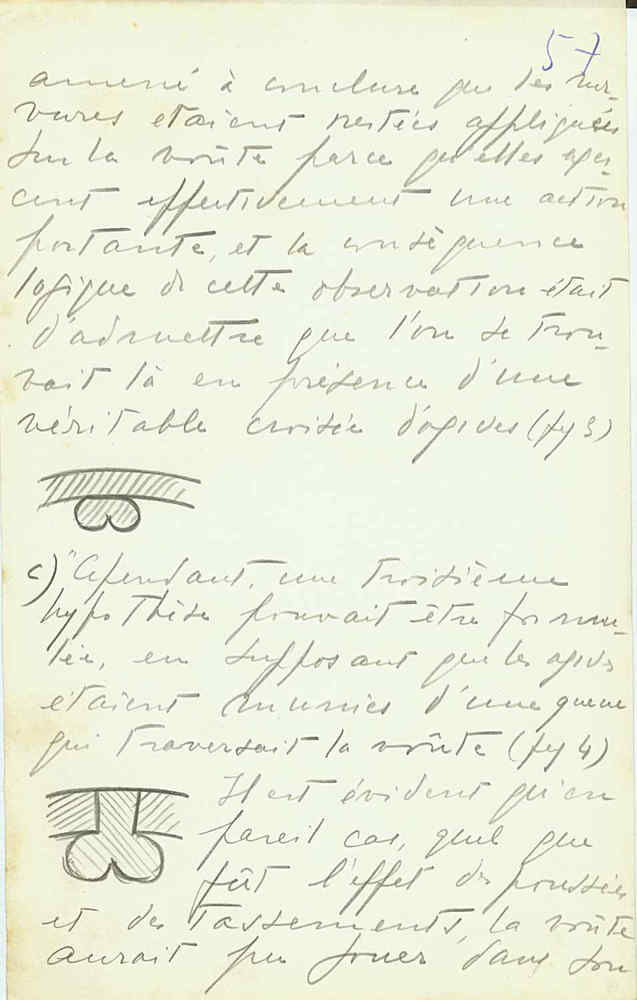 57
amené à conclure que les ner-
vures etaient restées appliquées
sur la voûte parce qu'elles exer-
cent effectivement une action
portante, et la conséquence
logique de cette observation était
d'admettre que l'on se trou-
vait là en présence d'une
véritable croisée d'ogives (fig 3)
c) "Cependant, une troisième
hypothèse pouvait être formu-
lée, en supposant que les ogives
étaient munies d'une queue
qui traversait la voûte (fig 4)
Il est évident qu'en
pareil cas, quel que
fût l'effet des poussées
et des tassements, la voûte
aurait pu jouer dans son